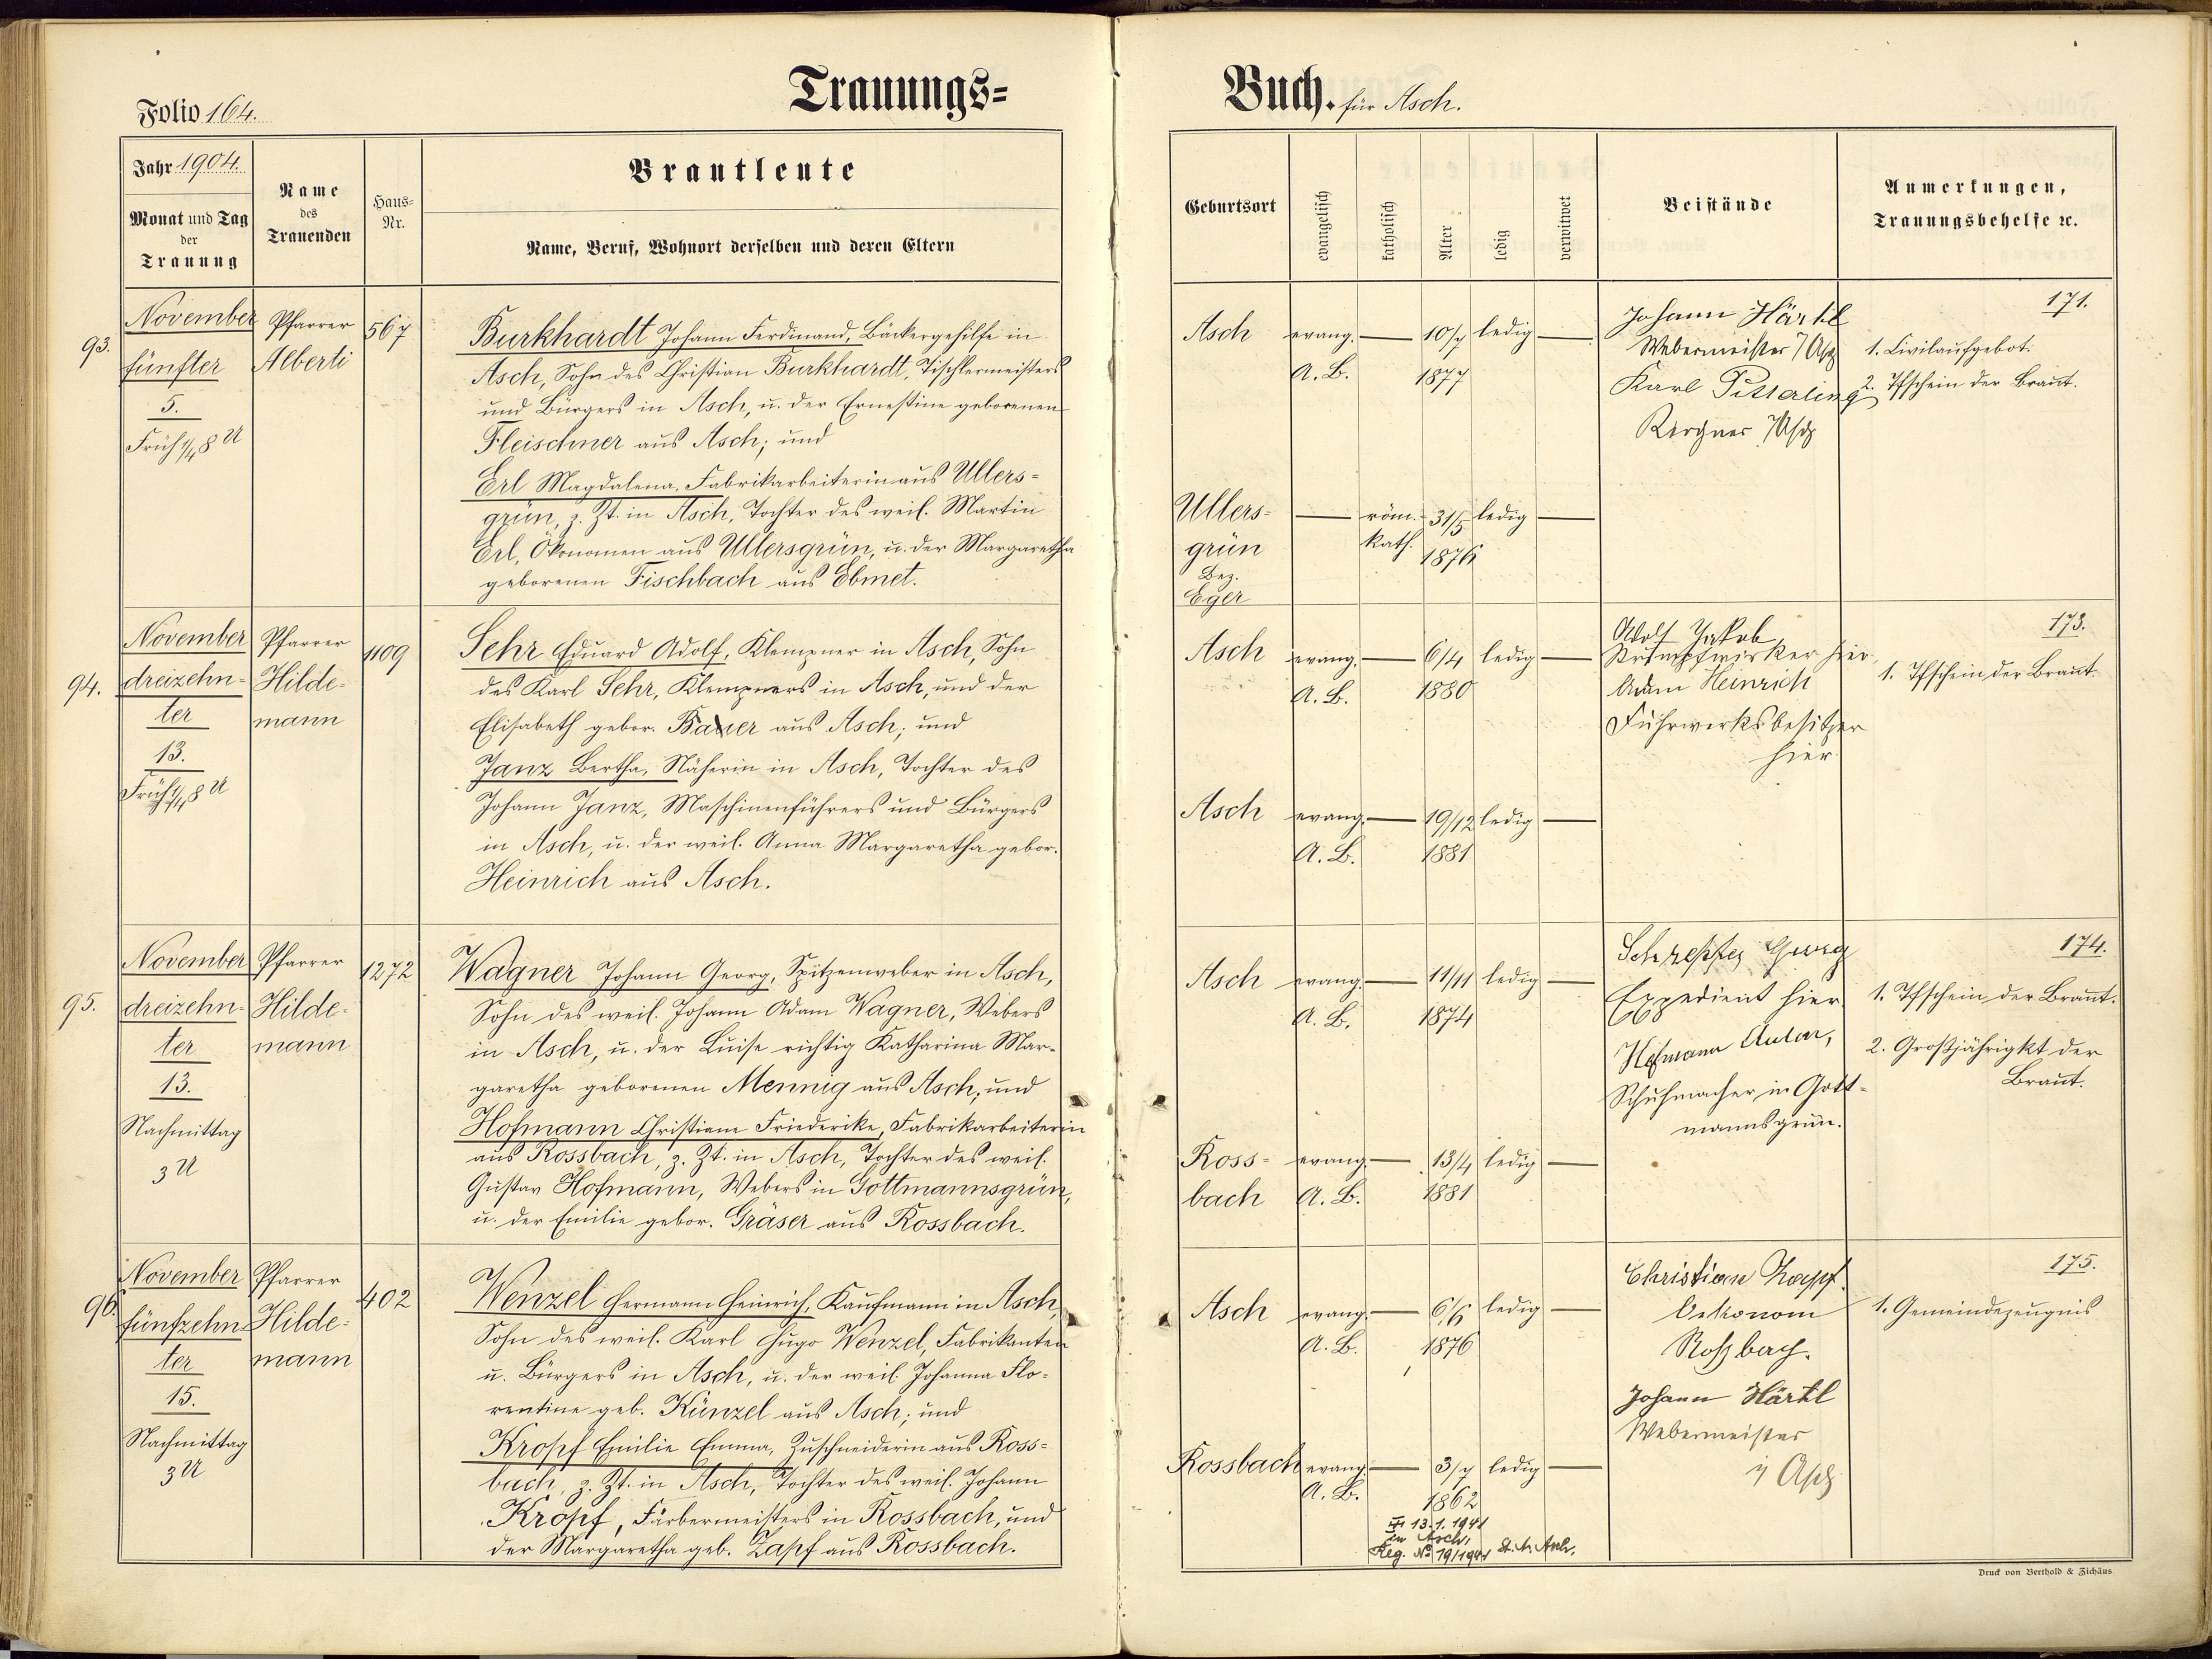 Folio 164.
Trauungs=
Buch. für Asch.
Jahr 1904.
Monat und Tag
der
Trauung
Name
des
Trauenden
Haus=
Nr.
Brautleute
Name, Beruf, Wohnort derselben und deren Eltern
Geburtsort
evangelisch
katholisch
Alter
ledig
verwitwet
Beistände
Anmerkungen,
Trauungsbehelfe ꝛc.
93.
November
fünfter
5.
Früh 1/4 8 U
Pfarrer
Alberti
567
Burkhardt Johann Ferdinand, Bäckergehilfe in
Asch, Sohn des Christian Burkhardt, Tischlermeisters
und Bürgers in Asch, u. der Ernestine geborenen
Fleischner aus Asch; und
Erl Magdalena, Fabrikarbeiterin aus Ullers=
grün, z. Zt. in Asch, Tochter des weil. Martin
Erl, Ökonomen aus Ullersgrün, u. der Margaretha
geborenen Fischbach aus Ebmet.
Asch
evang.
A. B.
10/7
1877
ledig
Johann Härtl
Webermeister / Asch
Karl Pitterling
171.
1. Civilaufgebot.
2. Tfschein der Braut.
Ullers=
grün
Bez.
Eger
röm.
kath.
31/5
1876
ledig
94.
November
dreizehn=
ter
13.
Früh 1/4 8 U
Pfarrer
Hilde=
mann
1109
Sehr Eduard Adolf, Klempner in Asch, Sohn
des Karl Sehr, Klempners in Asch, und der
Elisabeth gebor. Bauer aus Asch; und
Janz Bertha, Näherin in Asch, Tochter des
Johann Janz, Maschinenführers und Bürgers
in Asch, u. der weil. Anna Margaretha gebor.
Heinrich aus Asch.
Asch
evang.
A. B.
6/4
1880
ledig
Adolf Jakob
Strumpfwirker hier
Adam Heinrich
Fuhrwerksbesitzer
hier
173.
1. Tfschein der Braut.
Asch
evang.
A. B.
19/12
1881
ledig
95.
November
dreizehn=
ter
13.
Nachmittag
3 U
Pfarrer
Hilde=
mann
1272
Wagner Johann Georg, Spitzenweber in Asch,
Sohn des weil. Johann Adam Wagner, Webers
in Asch, u. der Luise richtig Katharina Mar=
garetha geborenen Mennig aus Asch; und
Hofmann Christiane Friederike, Fabrikarbeiterin
aus Rossbach, z. Zt. in Asch, Tochter des weil.
Gustav Hofmann, Webers in Gottmannsgrün,
u. der Emilie gebor. Gräser aus Rossbach.
Asch
evang.
A. B.
11/11
1874
ledig
Georg
Expedient hier
Hofmann Anton,
Schuhmacher in Gott=
mannsgrün.
174.
1. Tfschein der Braut.
2. Großjährigkt der
Braut.
Ross=
bach
evang.
A. B.
13/4
1881
ledig
96.
November
fünfzehn=
ter
15.
Nachmittag
3 U
Pfarrer
Hilde=
mann
402
Wenzel Hermann Heinrich, Kaufmann in Asch,
Sohn des weil. Karl Hugo Wenzel, Fabrikanten
u. Bürgers in Asch, u. der weil. Johanna Flo=
rentine geb. Künzel aus Asch; und
Kropf Emilie Emma, Zuschneiderin aus Ross=
bach, z. Zt. in Asch, Tochter des weil. Johann
Kropf, Färbermeisters in Rossbach, und
der Margaretha geb. Zapf aus Rossbach.
Asch
evang.
A. B.
6/6
1876
ledig
Christian Zapf
Oekonom
Roßbach.
Johann Härtl
Webermeister
in Asch
175.
1. Gemeindezeugnis
Rossbach
evang.
A. B.
3/7
1862
ledig
13.1.1941
in Asch,
Reg. No 19/1941 St. A. Asch.
Druck von Berthold & Zichäus